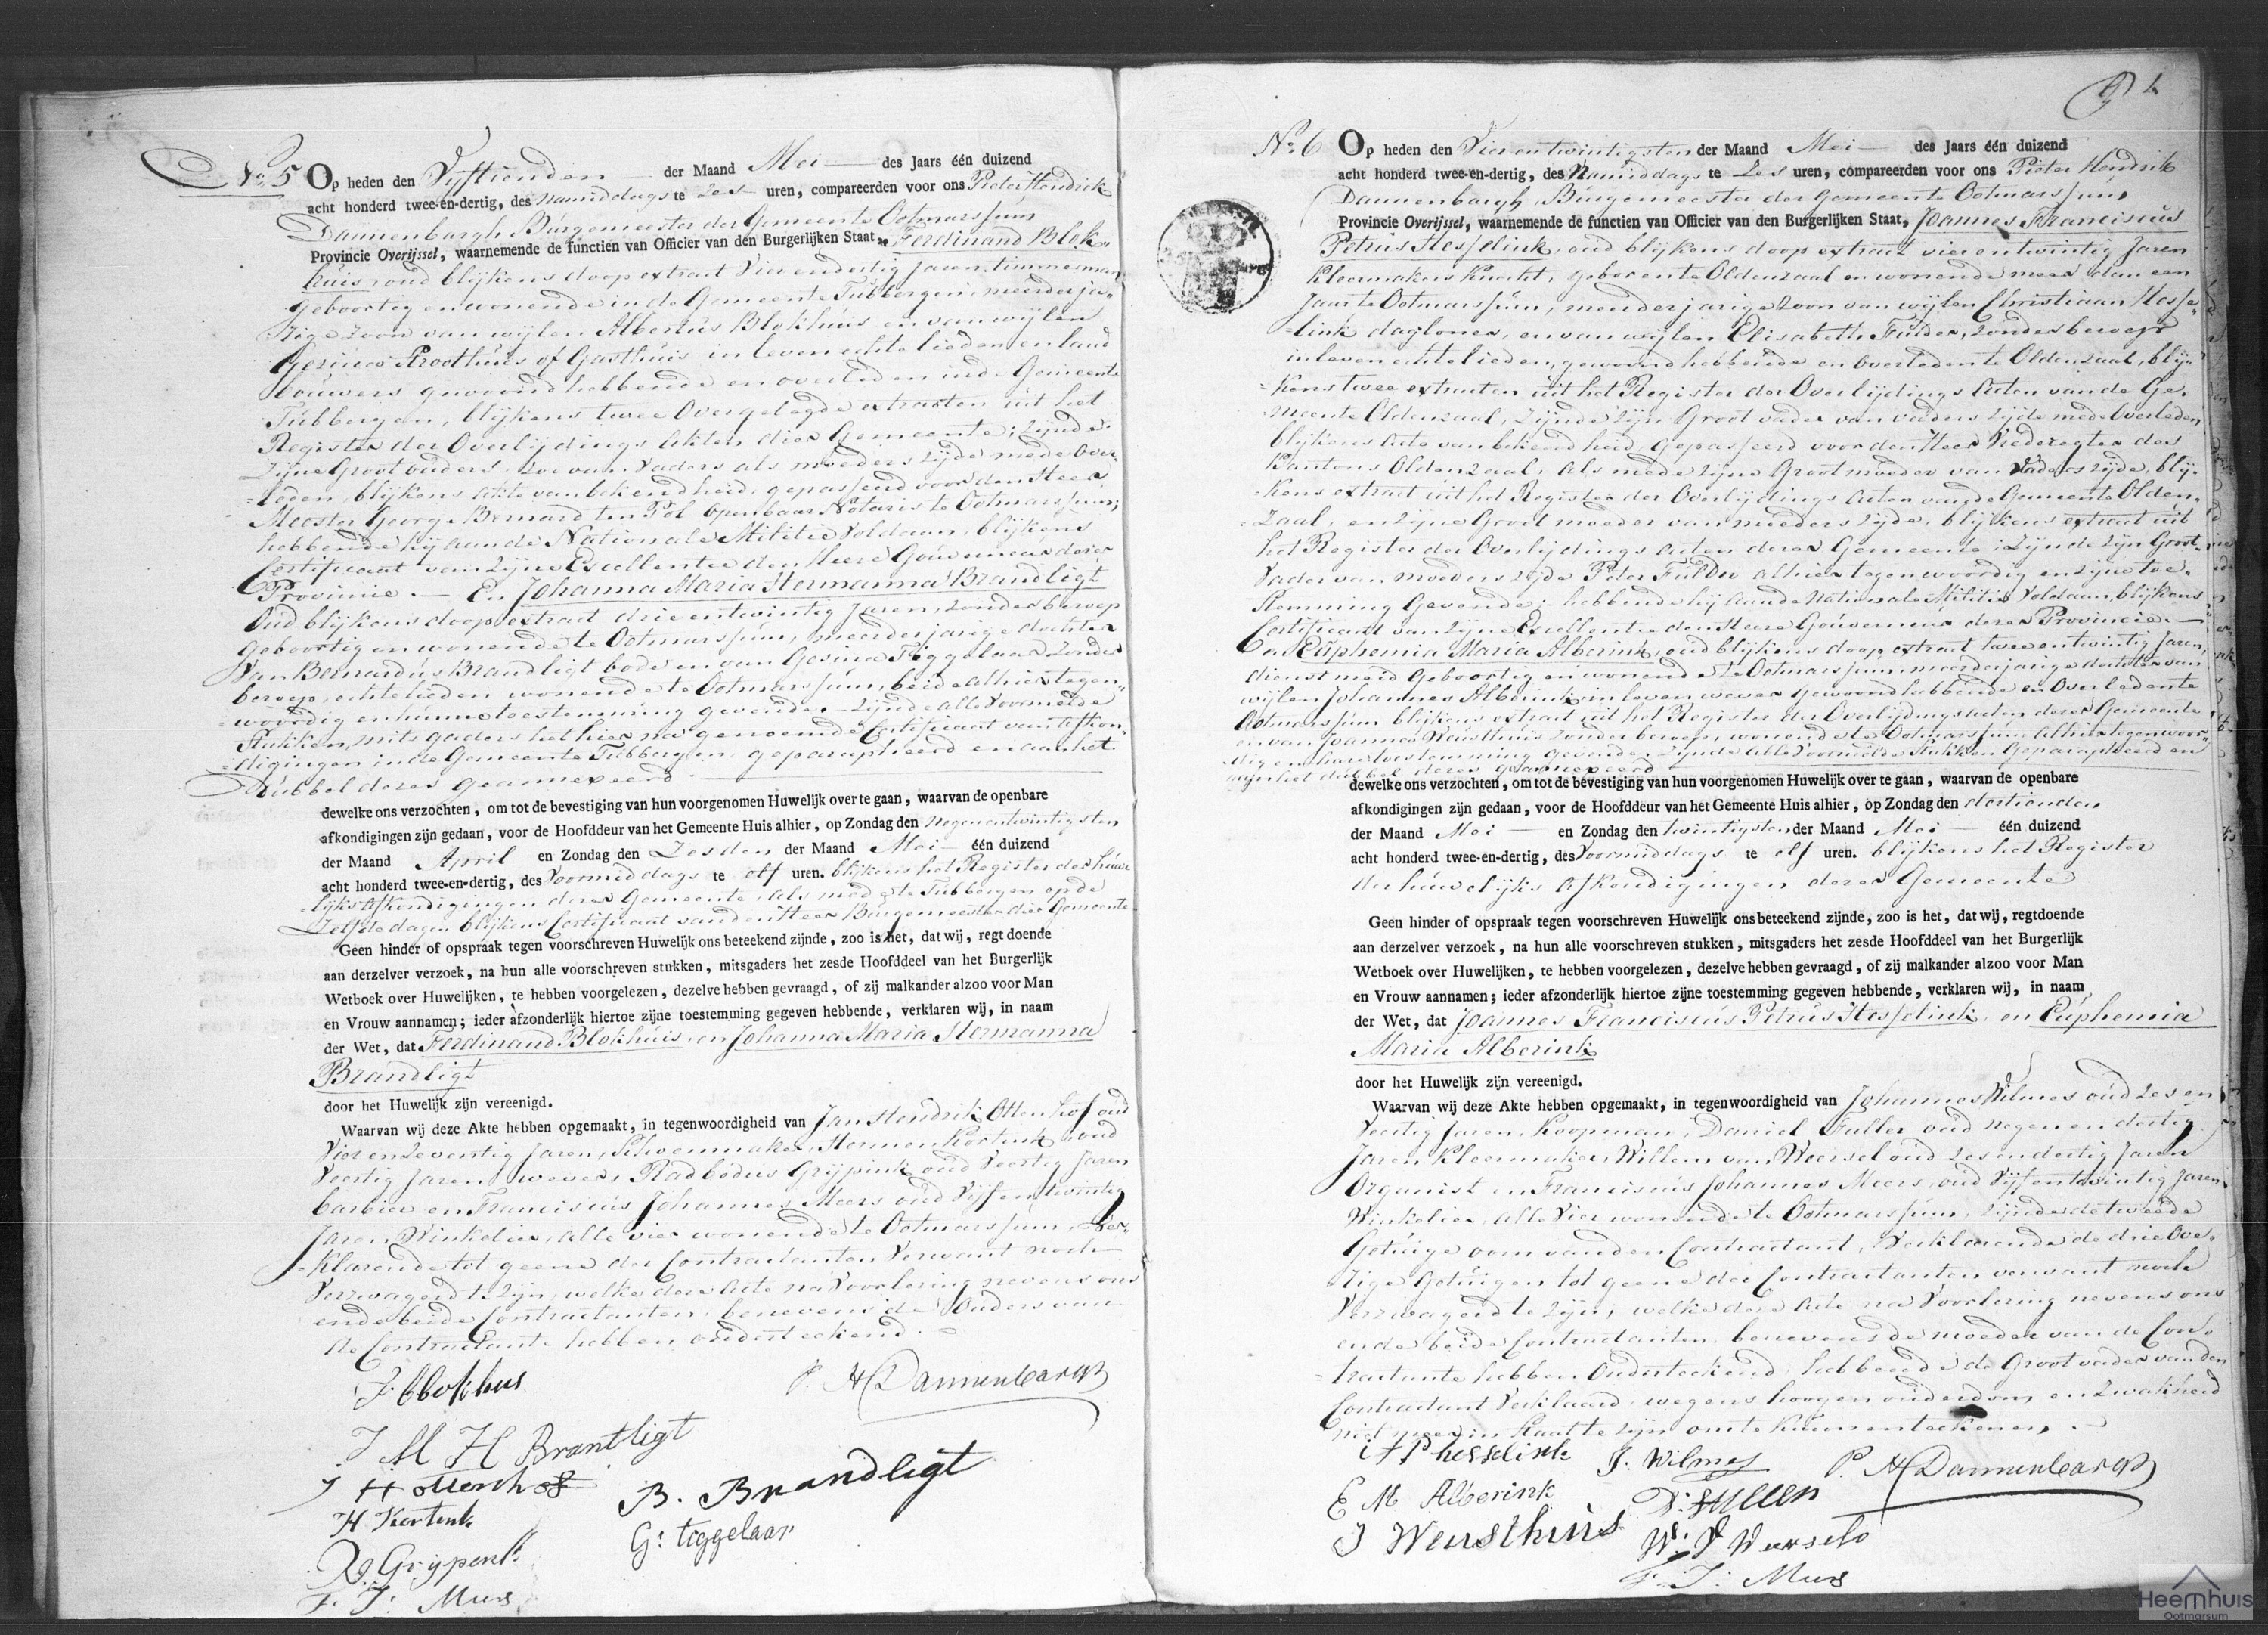 No. 5 Op heden den Vyftienden der Maand Mei des Jaars één duizend
acht honderd twee-en-dertig, des namiddags te zes uren, compareerden voor ons Pieter Hendrik
Dannenbargh Burgemeester der Gemeente Ootmarssum
Provincie Overijssel, waarnemende de functien van Officier van den Burgerlijken Staat, Ferdinand Blok„
huis, oud blijkens doop extract vier en dertig Jaren, timmerman
geboortig en wonende in de Gemeente Tubbergen, meerderja„
rige zoon van wijlen Albertus Blokhuis en van wijlen
Gezina Roothuis of Gasthuis in leven echte lieden en land
bouwers gewoond hebbende en overleden in de Gemeente
Tubbergen, blijkens twee overgelegde extracten uit het
Register der Overlijdings akten dier Gemeente; zijnde
zijne Groot ouders zoo van vaders als moeders zijde mede over
=leden, blijkens akte van bekendheid, gepasseerd voor den Heer
Meester George Bernard ten Pol openbaar Notaris te Ootmarssum;
hebbende hij aan de Nationale Militie voldaan, blijkens
Certificaat van zijne Excellentie den Heere Gouverneur dezer
Provincie. — En Johanna Maria Hermanna Brandligt
Oud blijkens doop extract drie en twintig Jaren, zonder beroep
geboortig en wonende te Ootmarssum, meerderjarige dochter
van Bernardus Brandligt bode en van Gesina Tiggelaar zonder
beroep, echtelieden wonende te Ootmarssum, beide alhier tegen„
=woordig en hunne toestemming gevende, zijnde alle voormelde
Stukken, mits gaders het hier na genoemde Certificaat van afkon„
=digingen in de Gemeente Tubbergen geparapheerd en aan het
Dubbel dezer geannexeerd.
dewelke ons verzochten, om tot de bevestiging van hun voorgenomen Huwelijk over te gaan, waarvan de openbare
afkondigingen zijn gedaan, voor de Hoofddeur van het Gemeente Huis alhier, op Zondag den negenentwintigsten
der Maand April en Zondag den Zesden der Maand Mei één duizend
acht honderd twee-en-dertig, des Voormiddags te elf uren. blijkens het Register der huwe
=lijks afkondigingen dezer Gemeente, als mede te Tubbergen op de
Zelfde dagen, blijkens Certificaat van den Heer Burgemeester dier Gemeente.
Geen hinder of opspraak tegen voorschreven Huwelijk ons beteekend zijnde, zoo is het, dat wij, regt doende
aan derzelver verzoek, na hun alle voorschreven stukken, mitsgaders het zesde Hoofddeel van het Burgerlijk
Wetboek over Huwelijken, te hebben voorgelezen, dezelve hebben gevraagd, of zij malkander alzoo voor Man
en Vrouw aannamen; ieder afzonderlijk hiertoe zijne toestemming gegeven hebbende, verklaren wij, in naam
der Wet, dat Ferdinand Blokhuis en Johanna Maria Hermanna
Brandligt
door het Huwelijk zijn vereenigd.
Waarvan wij deze Akte hebben opgemaakt, in tegenwoordigheid van Jan Hendrik Ottenhof oud
Vier en zeventig Jaren, Schoenmaker, Hermen Kortink, oud
Veertig Jaren, wever, Radbodus Grijpink oud Veertig Jaren
barbier en Franciscus Johannes Meers oud Vijf en twintig
Jaren Winkelier, alle vier wonende te Ootmarssum, ver„
=klarende tot geene der Contractanten Verwant noch
Verzwagerd te zijn, welke deze acte na Voorlezing nevens ons
ende beide Contractanten, benevens de Ouders van
de Contractante hebben onderteekend.
F. Blokhus
P. H Dannenbargh
J M H Brantligt
J H ottenhof
B. Brandligt
H Kortenk
G: tiggelaar
R. Grijpenk
F. J: Murs
91
No. 6 Op heden den Vierentwintigsten der Maand Mei des Jaars één duizend
acht honderd twee-en-dertig, des Namiddags te Zes uren, compareerden voor ons Pieter Hendrik
Dannenbargh, Burgemeester der Gemeente Ootmarssum
Provincie Overijssel, waarnemende de functien van Officier van den Burgerlijken Staat, Joannes Franciscus
Petrus Hesselink, oud blijkens doop extract vier entwintig Jaren
Kleermakers Knecht, geboren te Oldenzaal en wonende meer dan een
Jaar te Ootmarssum, meerderjarige zoon van wijlen Christiaan Hesse„
=link dagloner, en van wijlen Elisabeth Fulder, zonder beroep
in leven echtelieden, gewoond hebbende en overleden te Oldenzaal, blij„
=kens twee extracten uit het Register der Overlijdings Acten van de Ge„
meente Oldenzaal, zijnde zijn Groot vader van vaders zijde mede overleden
blijkens acte van bekendheid gepasseerd voor den Heer Vrederegter des
Kantons Oldenzaal, als mede zijne Grootmoeder van vaders zijde, blij„
=kens extract uit het Register der Overlijdings Acten van de Gemeente Olden„
=zaal, en zijne Groot moeder van moeders zijde, blijkens extract uit
het Register der Overlijdings acten dezer Gemeente; zijnde zijn Groot
Vader van moeders zijde Peter Fulder alhier tegenwoordig en zijne toe„
stemming gevende; hebbende hij aan de Nationale Militie Voldaan, blijkens
Certificaat van zijne Excellentie den Heere Gouverneur dezer Provincie. —
En Euphemia Maria Alberink, oud blijkens doop extract twee entwintig Jaren,
dienstmeid geboortig en wonende te Ootmarssum, meerderjarige dochter van
wijlen Johannes Alberink, in leven wever gewoond hebbende en Overleden te
Ootmarssum blijkens extract uit het Register der Overlijdings acten dezer Gemeente
en van Joannes Weusthuis zonder beroep, wonende te Ootmarssum alhier tegenwoor„
dig en hare toestemming gevende, zijnde alle Voormelde Stukken Geparapheerd en
aan het dubbel dezer geannexeerd
dewelke ons verzochten, om tot de bevestiging van hun voorgenomen Huwelijk over te gaan, waarvan de openbare
afkondigingen zijn gedaan, voor de Hoofddeur van het Gemeente Huis alhier, op Zondag den dertienden
der Maand Mei en Zondag den twintigsten der Maand Mei één duizend
acht honderd twee-en-dertig, des Voormiddags te elf uren. blijkens het Register
der huwelijks afkondigingen dezer Gemeente
Geen hinder of opspraak tegen voorschreven Huwelijk ons beteekend zijnde, zoo is het, dat wij, regtdoende
aan derzelver verzoek, na hun alle voorschreven stukken, mitsgaders het zesde Hoofddeel van het Burgerlijk
Wetboek over Huwelijken, te hebben voorgelezen, dezelve hebben gevraagd, of zij malkander alzoo voor Man
en Vrouw aannamen; ieder afzonderlijk hiertoe zijne toestemming gegeven hebbende, verklaren wij, in naam
der Wet, dat Joannes Franciscus Petrus Hesselink, en Euphemia
Maria Alberink
door het Huwelijk zijn vereenigd.
Waarvan wij deze Akte hebben opgemaakt, in tegenwoordigheid van Johannes Wilmes oud zes en
Veertig Jaren, Koopman, Daniel Fuller oud negen en dertig
Jaren Kleermaker, Willem van Weersel oud zes en dertig Jaren
Organist en Franciscus Johannes Meers, oud Vijf entwintig Jaren
Winkelier, alle Vier wonende te Ootmarssum, zijnde de tweede
Getuige oom van den Contractant, Verklarende de drie Ove„
rige Getuigen tot geene der Contractanten verwant noch
Verzwagerd te zijn, welke deze acte na Voorlezing nevens ons
ende beide Contractanten, benevens de moeder van de Con„
=tractante hebben Onderteekend, hebbende de Grootvader van den
Contractant Verklaard, wegens hoogen ouderdom en zwakheid
niet meer in staat te zijn om te kunnen teekenen.
J F P hesselink
J. Wilmes
P. H Dannenbargh
E M Alberink
D. Fullen
J Weusthuis
W. V Weerselo
F. J: Murs
Heemhuis
Ootmarsum